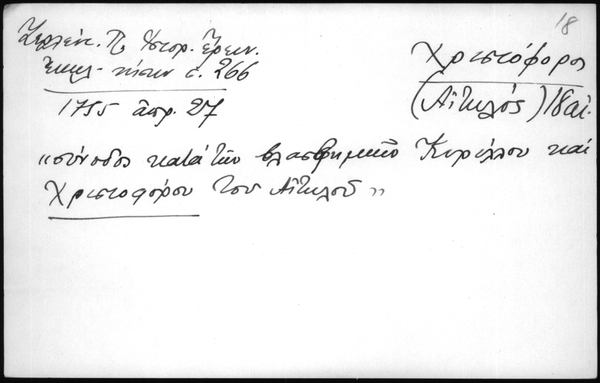 18
Ζερλέντ. Π. Ἱστορ. Ἔρευν.
Ἐκκλ- νήσων σ. 266
1755 ἀπρ. 27
Χριστόφορος
(Αἰτωλός) 18 αἰ.
"σύνοδος κατὰ τῶν βλασφημιῶν Κυρίλλου καὶ
Χριστοφόρου τοῦ Αἰτωλοῦ"